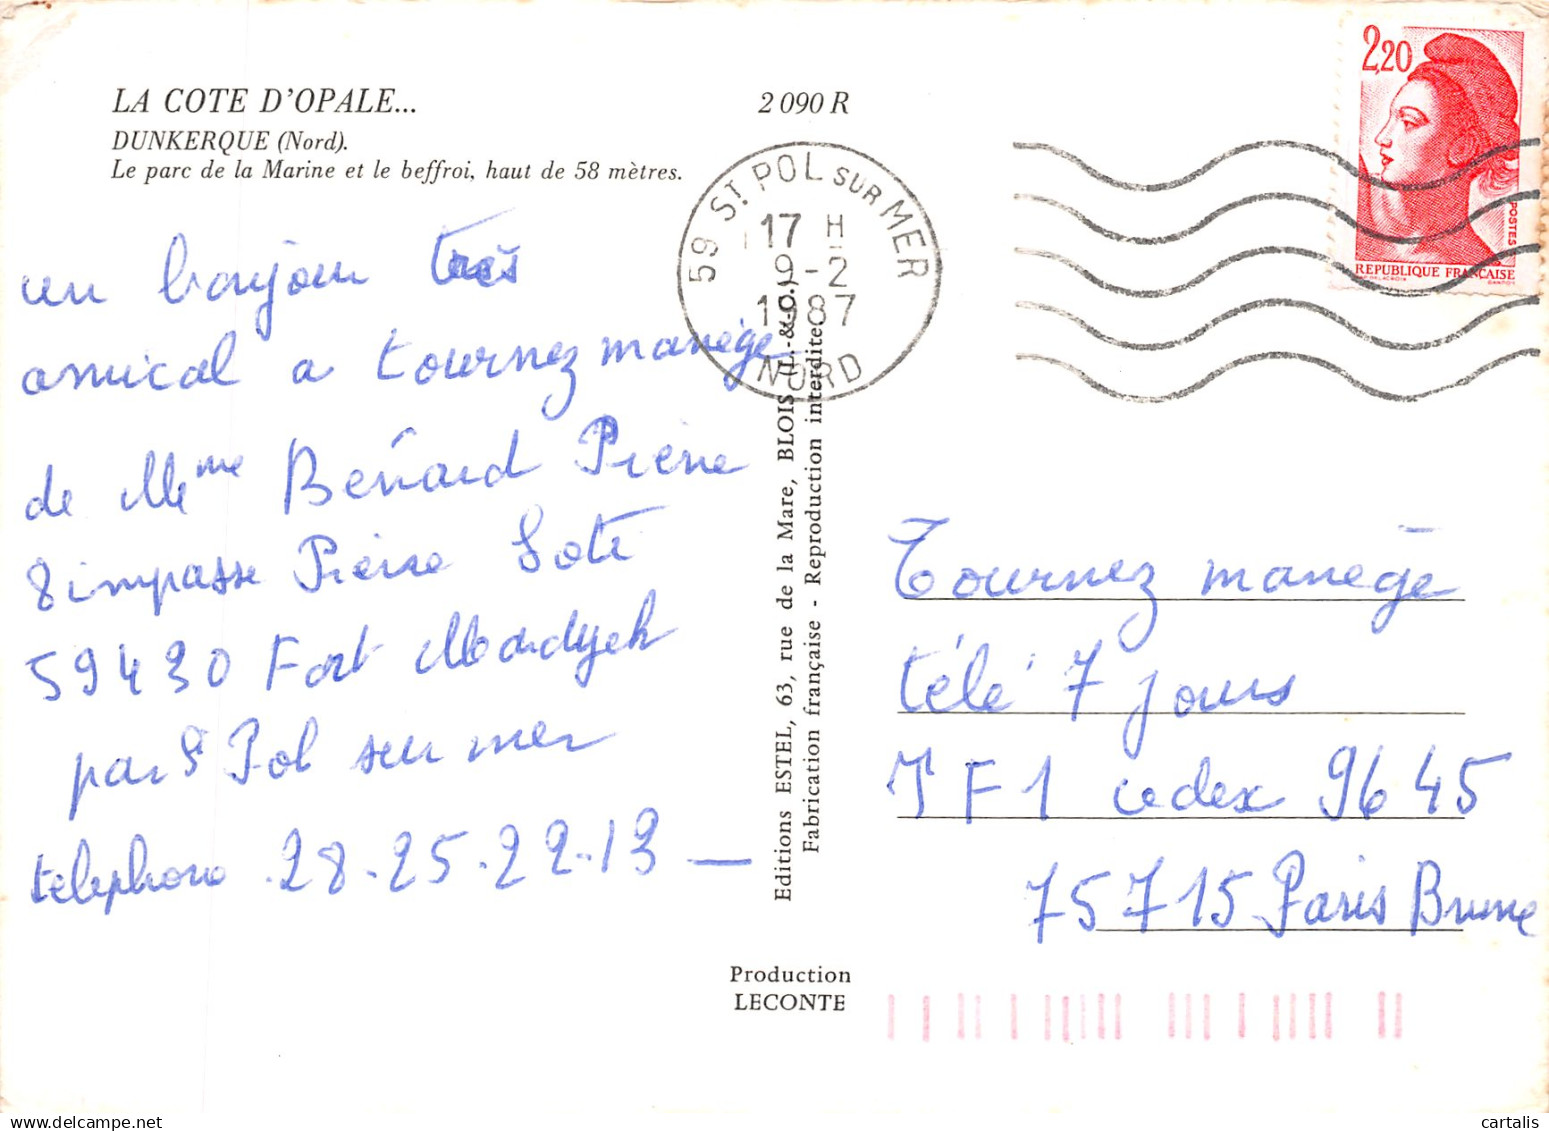 LA COTE D'OPALE...
DUNKERQUE (Nord).
Le parc de la Marine et le beffroi, haut de 58 mètres.
2 090 R
59 St. POL SUR MER
17 H
9-2
1987
NORD
2,20
POSTES
REPUBLIQUE FRANÇAISE
un bonjour très
amical a tournez manège
de Mme Benard Pierre
8 impasse Pierre Loti
59430 Fort Mardyck
par St Pol sur mer
telephone 28-25-22-13 —
Editions ESTEL, 63, rue de la Mare, BLOIS (L.-&-C.)
Fabrication française - Reproduction interdite.
Tournez manège
télé 7 jours
TF1 cedex 9645
75715 Paris Brune
Production
LECONTE
cartalis